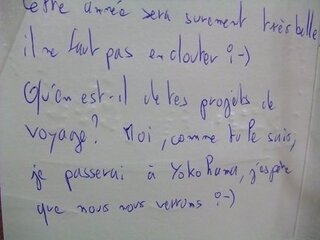 cette année sera surement très belle
il ne faut pas en douter :-)
Qu'en est-il de tes projets de
voyage? Moi, comme tu le sais,
je passerai à Yokohama, j'espère
que nous nous verrons :-)